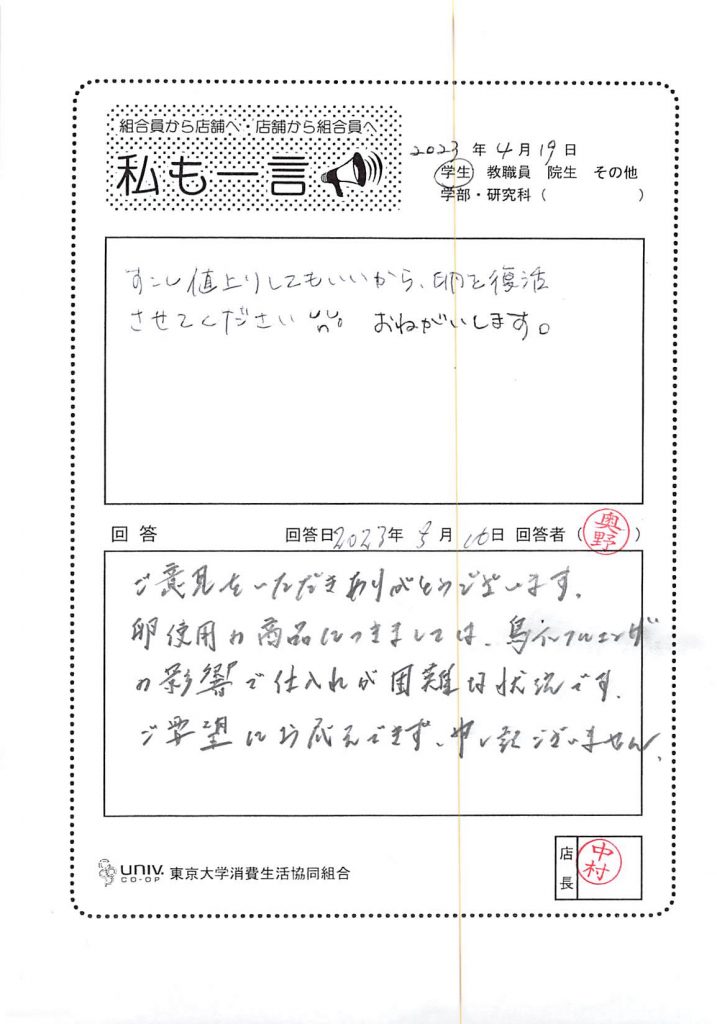 組合員から店舗へ・店舗から組合員へ
私も一言
2023年4月19日
学生 教職員 院生 その他
学部・研究科（　　　　）
すこし値上りしてもいいから、卵を復活
させてください おねがいします。
回答 回答日2023年5月10日 回答者（奥野）
ご意見をいただきありがとうございます。
卵使用の商品につきましては、鳥インフルエンザ
の影響で仕入れが困難な状況です。
ご要望にお応えできず、申し訳ございません。
店長 中村
UNIV. CO-OP 東京大学消費生活協同組合